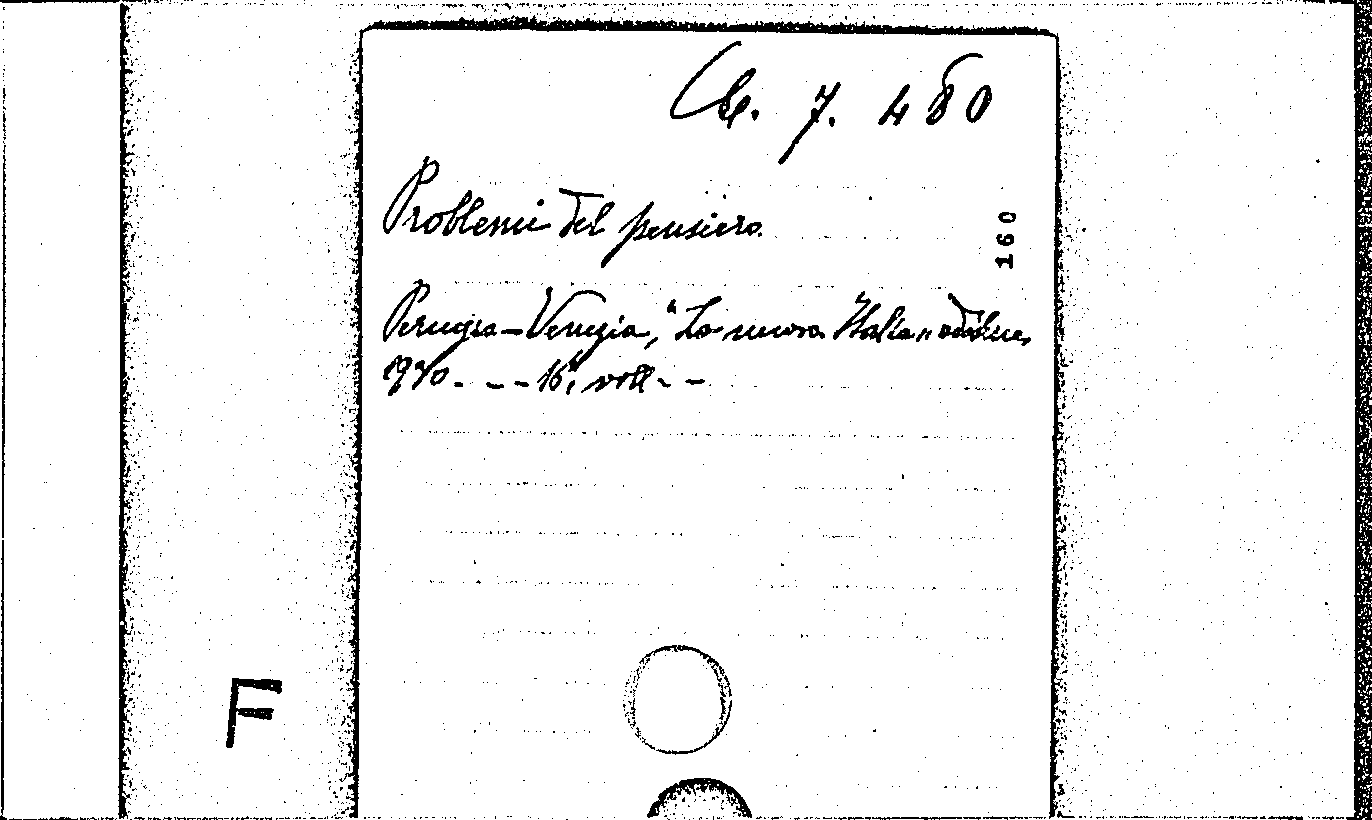 7. 480
Problemi del pensiero.
160
Perugia-Venezia, "La nuova Italia" editrice,
1930. - - - 16°, voll. - -
F